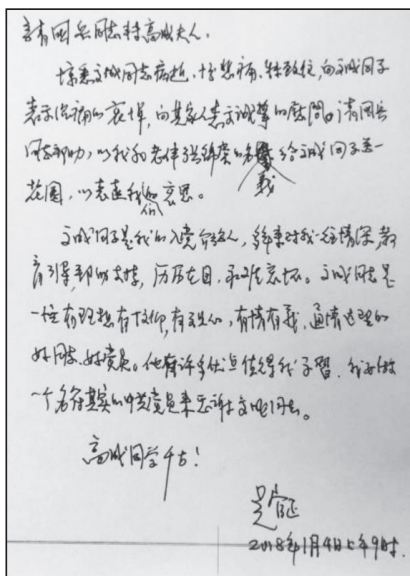 请国兵同志转高成夫人.
惊悉文成同志病逝,十分悲痛.特致信,向文成同志
表示沉痛的哀悼,向其家人表示诚挚的慰问。请国兵
同志帮助,以我和老伴张绵荣的名义给文成同志送一
花圈,以表达我们的哀思。
文成同志是我的入党介绍人,多年来对我一往情深,教
育引导,帮助支持,历历在目,永难忘怀。文成同志是
一位有理想有信仰,有良心,有情有义,通情达理的
好同志、好党员。他有许多优点值得我学习.我要做
一个名符其实的中共党员来告慰文成同志。
高成同学千古!
2018年1月4日上午9时.